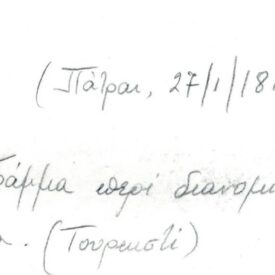 (Πάτραι, 27/1/181
γράμμα περί διανομ
(Τουρκιστί)